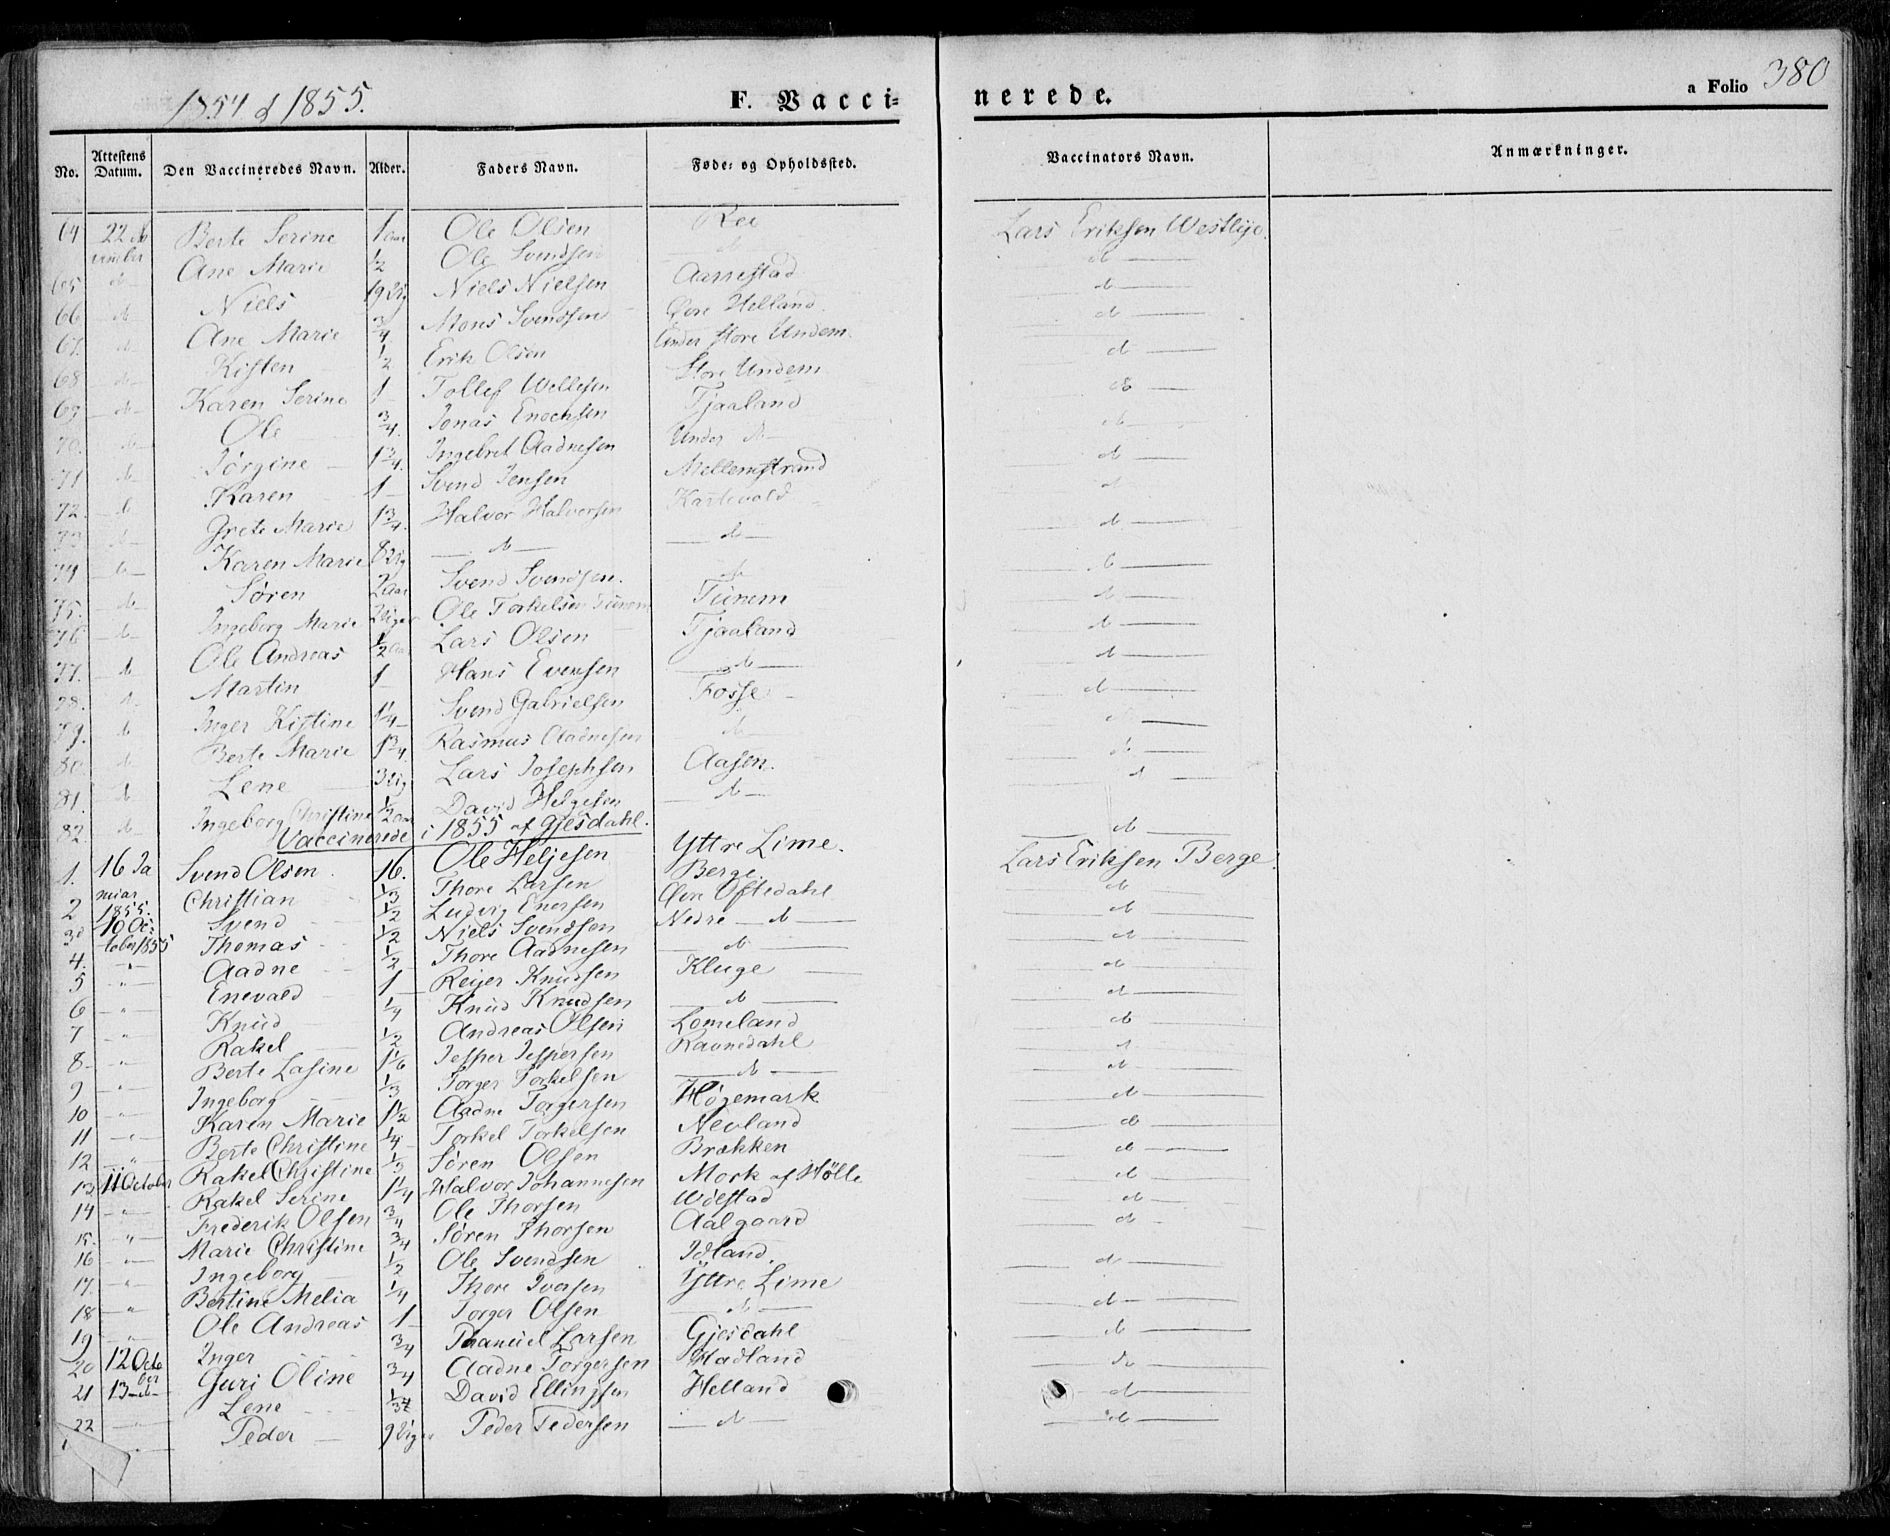 1854 & 1855.
F. Vacci=
nerede.
a Folio 380
No. Attestens Datum. Den Vaccineredes Navn. Alder. Faders Navn. Føde= og Opholdssted. Vaccinators Navn. Anmærkninger.
64 22 No Berte Serine 1 aar Ole Olsen Ree Lars Eriksen Westlye.
vember
65 d Ane Marie 1/2 Ole Svendsen d d
66 d Niels 19 Ug Niels Nielsen Aarrestad d
67. d Ane Marie 3/4 Mons Svendsen Øvre Helland d
68 d Kisten 1/2 Erik Olsen Under Store Undem. d
69 d Karen Serine 1 Tollef Wellesen Store Undem d
70. d Ole 3/4. Jonas Enochsen Tjaaland d
71 d Jørgine 1 3/4. Ingebret Aadnesen Under d d
72. d Karen 1 Svend Jensen Mellemstrand d
73 d Grete Marie 1 3/4. Halvor Halvorsen Kartevold d
74 d Karen Marie 8 Ug d d d
75. d Søren 2 aar Svend Svendsen. d d
76 d Ingeborg Marie Ole Torkelsen Tunem Tunem d
77. d Ole Andreas 1/2 aar Lars Olsen Tjaaland d
78. d Martin 1 Hans Evensen d d
79. d Inger Kistine 1 1/4 Svend Gabrielsen Fosse d
80. d Berte Marie 1 3/4 Rasmus Aadnesen d d
81. d Lene 3 Ug Lars Josephsen Aasen. d
82. d Ingeborg Christine 1/2 aar David Helgesen d d
Vaccinerede i 1855 af Gjesdahl.
1. 16 Ja Svend Olsen 16. Ole Heljesen Yttre Lime. Lars Eriksen Berge
nuar
2 1855. Christian 1/3 Thore Larsen Berge. d
3 10 Oc= Svend 1/2 Ludvig Enersen Øvre Oftedahl d
tober 1855
4. " Thomas 1/2 Niels Svendsen Nedre d d
5 " Aadne 1/2 Thore Aadnesen d d
6 " Enevald 1 Reijer Knudsen Kluge d
7 " Knud 1/4 Knud Knudsen d d
8 " Rakel 1/2 Andreas Olsen Lomeland d
9 " Berte Lasine 1 1/6 Jesper Jespersen Ravnedahl d
10 " Ingeborg 1/3 Torger Torkelsen d d
11 " Karen Marie 1 1/2 Aadne Torgersen Høgemark d
12 " Berte Christine 1/4 Torkel Torkelsen Nevland d
13 11 October Rakel Christine 1/3 Søren Olsen Brækken d
14 " Rakel Serine 1 1/4 Halvor Johannesen Mork af Hölle d
15. " Frederik Olsen 3/4 Ole Thorsen Wølstad d
16 " Marie Christine 3/4 Søren Thorsen Aalgaard d
17. " Ingeborg 1/2 Ole Svendsen Idland. d
18 " Bertine Melia 1/4 Thore Iversen Yttre Lime d
19 " Ole Andreas 1 Torger Olsen d d
20 12 Octo Inger 3/4 Larsen Gjesdahl d
ber
21 13 d Guri Oline 3/4 Aadne Torgersen Madland d
22 " Lene David Ellingsen Helland d
" Peder 9 Uger Peder Pedersen d